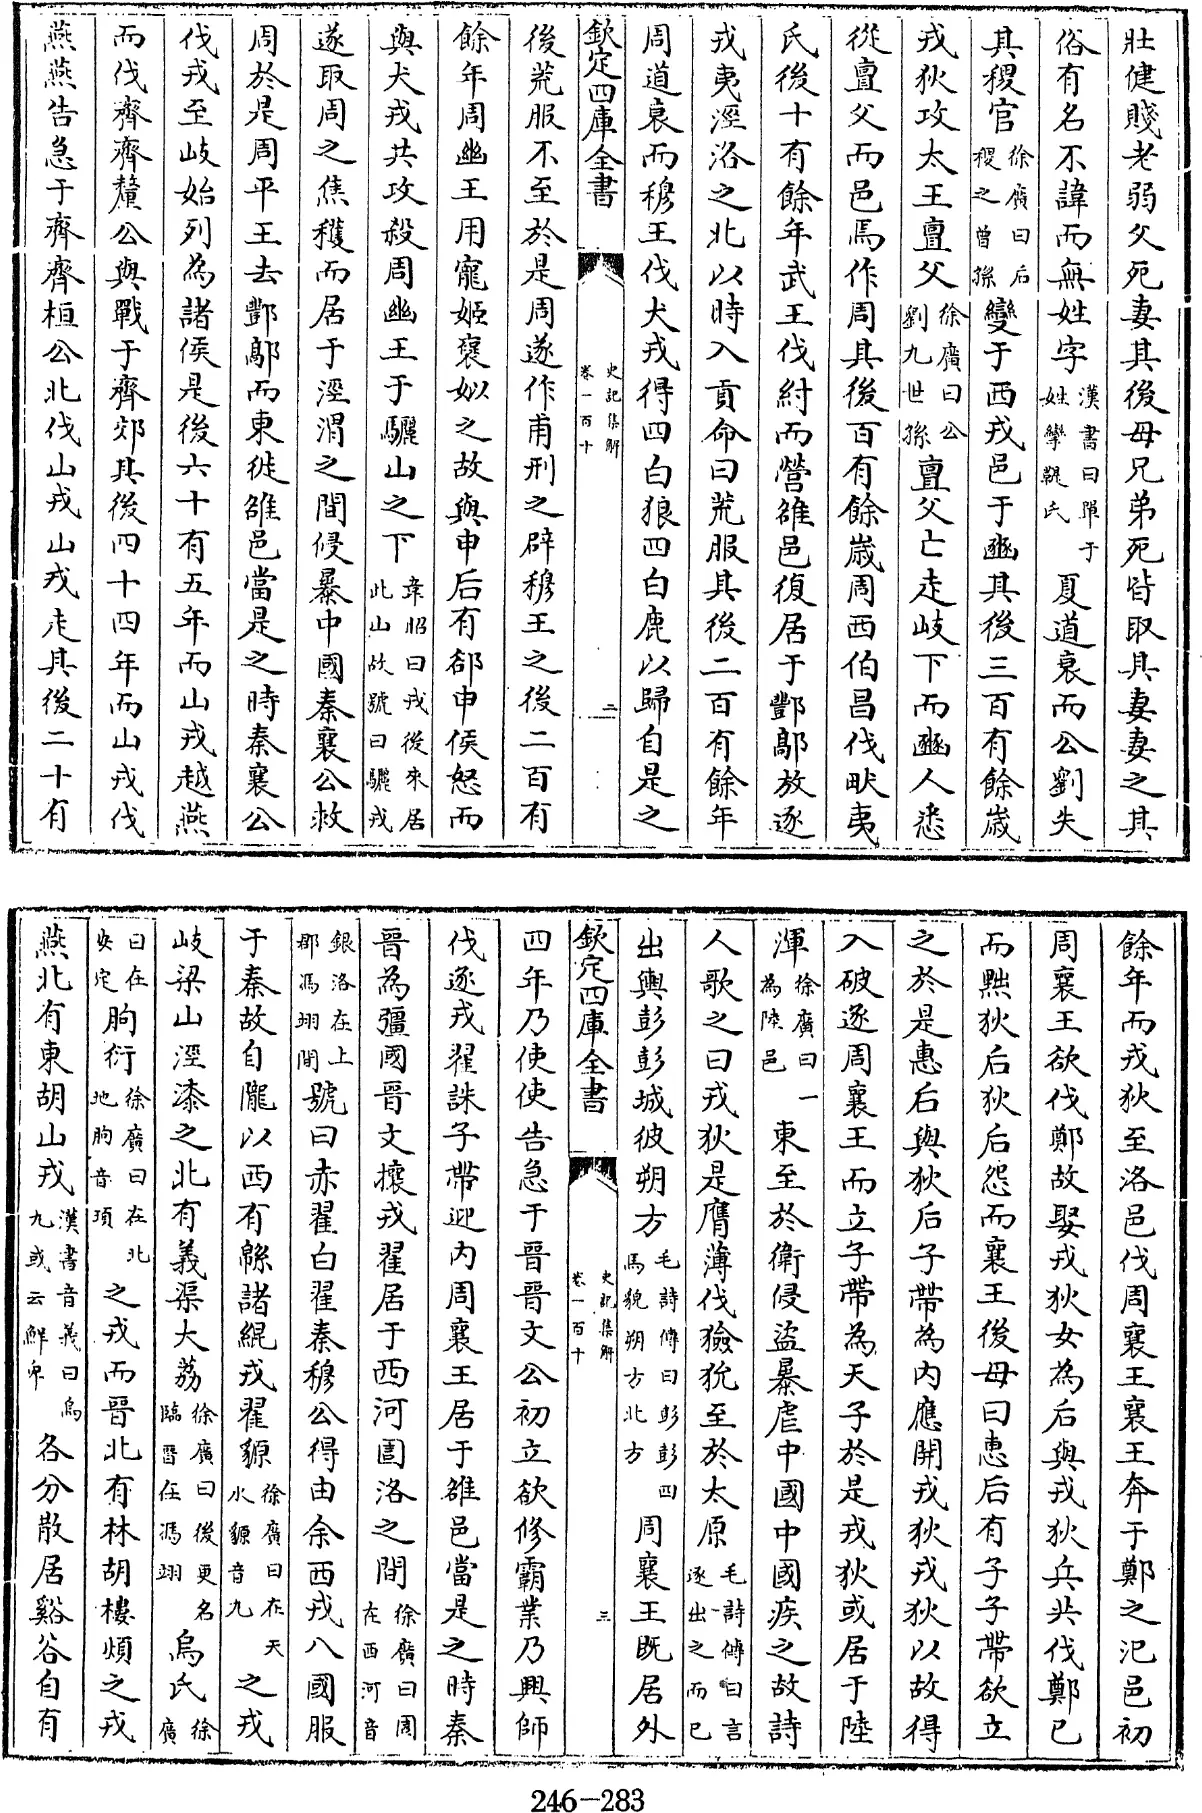 壯健賤老弱父死妻其後母兄弟死皆取其妻妻之其
俗有名不諱而無姓字漢書曰單于姓攣鞮氏夏道衰而公劉失
其稷官徐廣曰后稷之曾孫變于西戎邑于豳其後三百有餘歲
戎狄攻太王亶父徐廣曰公劉九世孫亶父亡走岐下而豳人悉
從亶父而邑焉作周其後百有餘歲周西伯昌伐畎夷
氏後十有餘年武王伐紂而營雒邑復居于酆鄗放逐
戎夷涇洛之北以時入貢命曰荒服其後二百有餘年
周道衰而穆王伐犬戎得四白狼四白鹿以歸自是之
欽定四庫全書 史記集解卷一百十 二
後荒服不至於是周遂作甫刑之辟穆王之後二百有
餘年周幽王用寵姬襃姒之故與申后有郤申侯怒而
與犬戎共攻殺周幽王于驪山之下韋昭曰戎後來居此山故號曰驪戎
遂取周之焦穫而居于涇渭之間侵暴中國秦襄公救
周於是周平王去酆鄗而東徙雒邑當是之時秦襄公
伐戎至岐始列為諸侯是後六十有五年而山戎越燕
而伐齊齊釐公與戰于齊郊其後四十四年而山戎伐
燕燕告急于齊齊桓公北伐山戎山戎走其後二十有
餘年而戎狄至洛邑伐周襄王襄王奔于鄭之氾邑初
周襄王欲伐鄭故娶戎狄女為后與戎狄兵共伐鄭已
而黜狄后狄后怨而襄王後母曰惠后有子子帶欲立
之於是惠后與狄后子帶為內應開戎狄戎狄以故得
入破逐周襄王而立子帶為天子於是戎狄或居于陸
渾徐廣曰一為陸邑東至於衛侵盜暴虐中國中國疾之故詩
人歌之曰戎狄是膺薄伐獫狁至於太原毛詩傳曰言逐出之而已
出輿彭彭城彼朔方毛詩傳曰彭彭四馬貌朔方北方周襄王既居外
欽定四庫全書 史記集解卷一百十 三
四年乃使使告急于晉晉文公初立欲修霸業乃興師
伐逐戎翟誅子帶迎內周襄王居于雒邑當是之時秦
晉為彊國晉文攘戎翟居于西河圁洛之間徐廣曰圁在西河音
銀洛在上郡馮翊間號曰赤翟白翟秦穆公得由余西戎八國服
于秦故自隴以西有緜諸緄戎翟䝠徐廣曰在天水䝠音九之戎
岐梁山涇漆之北有義渠大荔徐廣曰後更名臨晉在馮翊烏氏徐廣
曰在安定朐衍徐廣曰在北地朐音頊之戎而晉北有林胡樓煩之戎
燕北有東胡山戎漢書音義曰烏九或云鮮卑各分散居谿谷自有
246-283